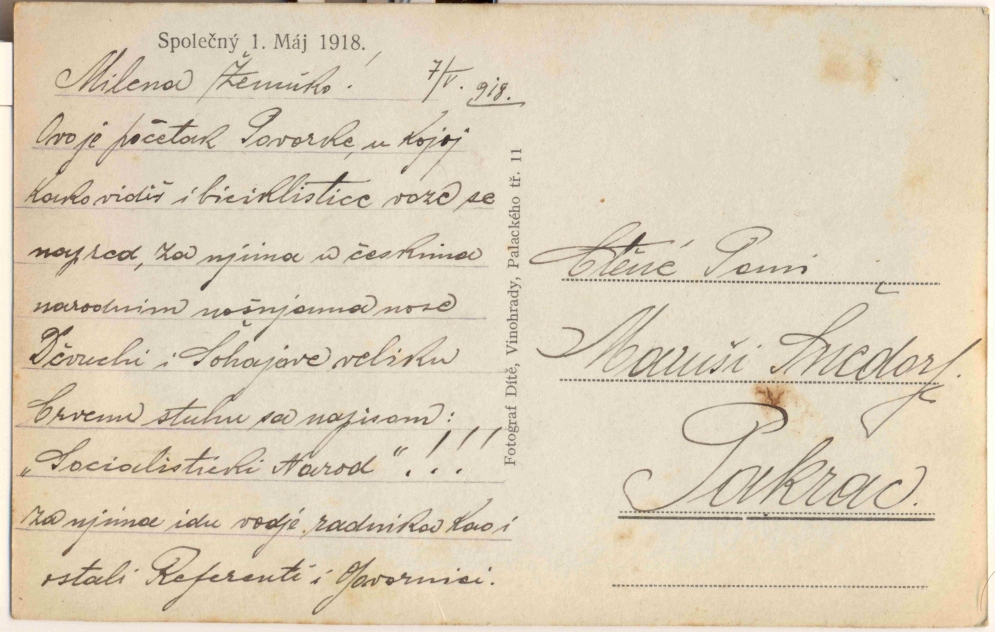 Společný 1. Máj 1918.
Milena Ženuško! 7/V. 918.
Ovo je početak Povorke, u kojoj
kako vidiš i biciklistice voze se
najred, za njima u českima
narodnim nošnjama nose
Děvuchi i Šohajove veliku
Crvenu stuhu sa napisom:
„Socialisticki Narod“. ! ! !
za njima idu vodje radnika kao i
ostali Referenti i Govornici.
Fotograf Dítě, Vinohrady, Palackého tř. 11
Ctěné Pani
Maruši
Pakrac.